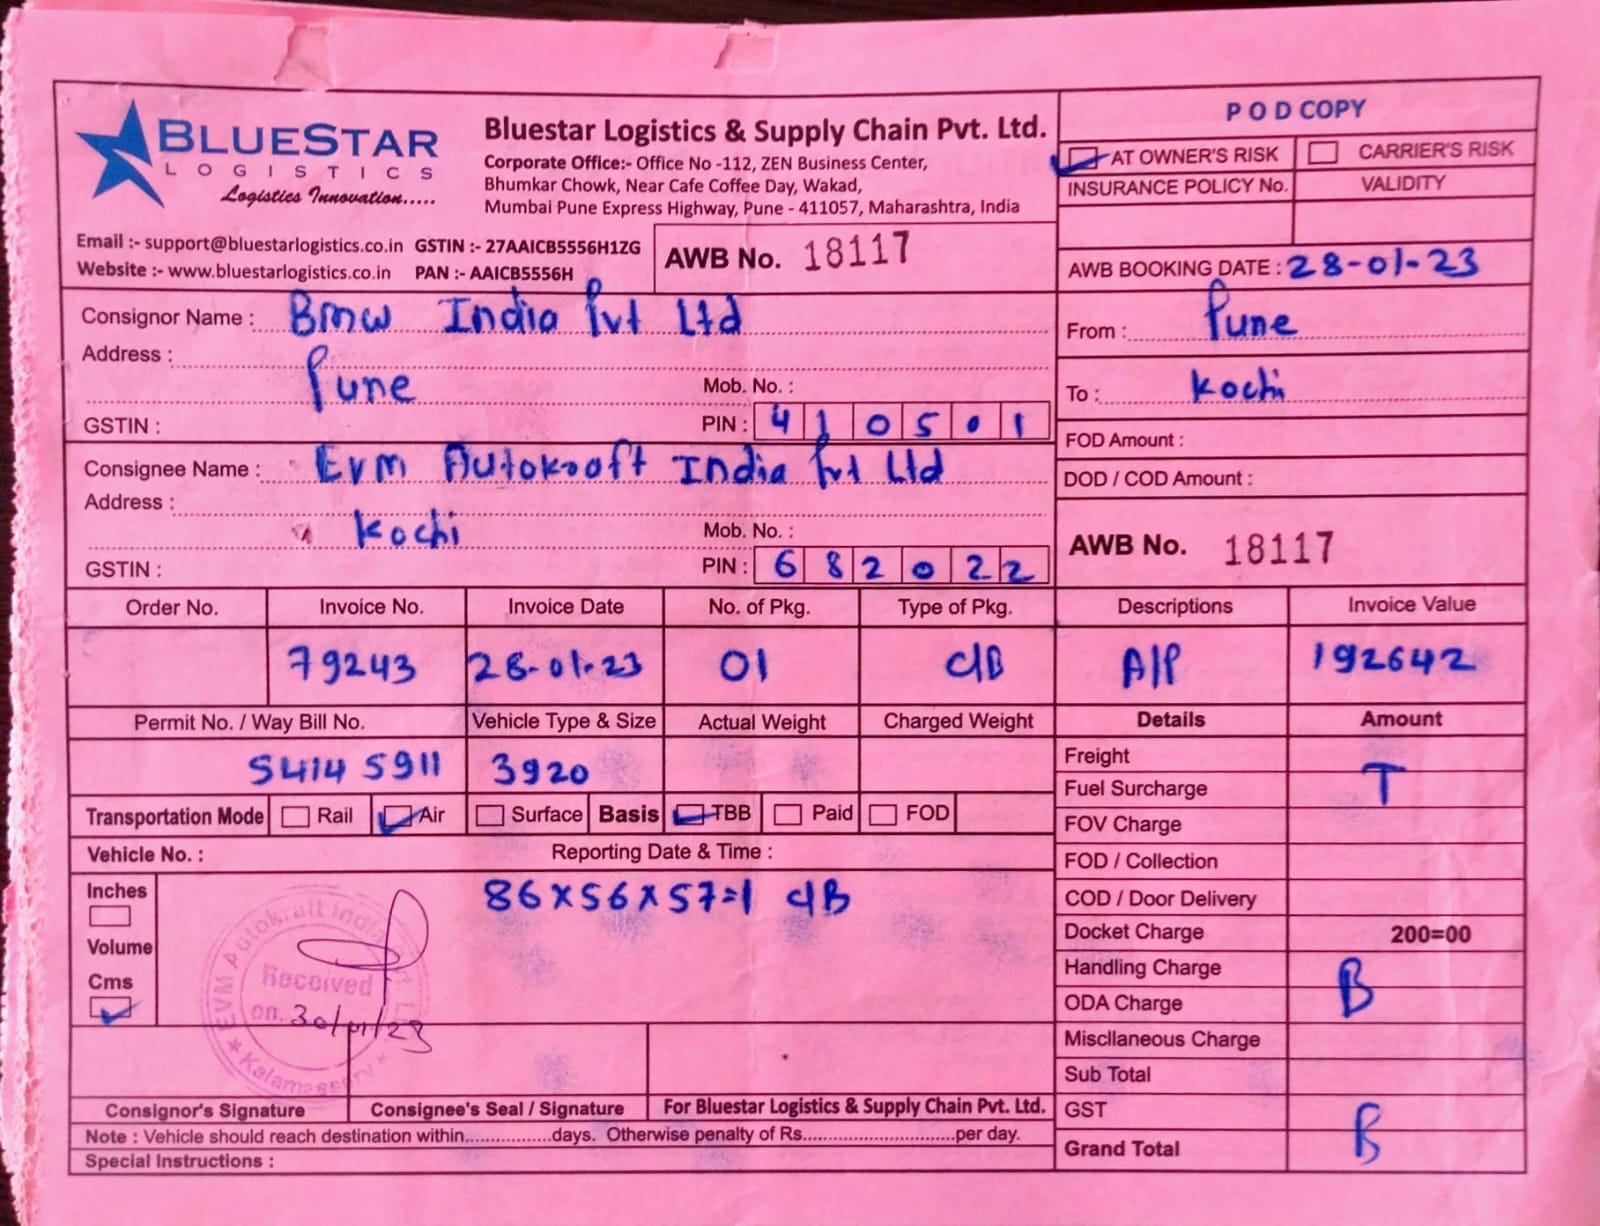 BLUESTAR
LOGISTICS
Logistics Innovation.....
Bluestar Logistics & Supply Chain Pvt. Ltd.
Corporate Office:- Office No -112, ZEN Business Center,
Bhumkar Chowk, Near Cafe Coffee Day, Wakad,
Mumbai Pune Express Highway, Pune - 411057, Maharashtra, India
Email :- support@bluestarlogistics.co.in GSTIN :- 27AAICB5556H1ZG
Website :- www.bluestarlogistics.co.in PAN :- AAICB5556H
AWB No. 18117
POD COPY
AT OWNER'S RISK CARRIER'S RISK
INSURANCE POLICY No. VALIDITY
AWB BOOKING DATE : 28-01-23
Consignor Name : Bmw India Pvt Ltd
Address :
Pune Mob. No. :
GSTIN : PIN : 410501
From : Pune
To : Kochi
FOD Amount :
DOD / COD Amount :
Consignee Name : Evm Autokraft India Pvt Ltd
Address :
Kochi Mob. No. :
GSTIN : PIN : 682022
AWB No. 18117
Order No. Invoice No. Invoice Date No. of Pkg. Type of Pkg. Descriptions Invoice Value
79243 28-01-23 01 C/B A/P 192642
Permit No. / Way Bill No. Vehicle Type & Size Actual Weight Charged Weight Details Amount
54145911 3920
Transportation Mode Rail Air Surface Basis TBB Paid FOD
Vehicle No. : Reporting Date & Time :
Inches
Volume
Cms
86x56x57=1 C/B
EVM Autokraft India
Received
on. 30/01/23
Kalamassery
Freight
T
Fuel Surcharge
FOV Charge
FOD / Collection
COD / Door Delivery
Docket Charge 200=00
Handling Charge
B
ODA Charge
Miscllaneous Charge
Sub Total
GST
B
Grand Total
Consignor's Signature Consignee's Seal / Signature For Bluestar Logistics & Supply Chain Pvt. Ltd.
Note : Vehicle should reach destination within................days. Otherwise penalty of Rs............................per day.
Special Instructions :